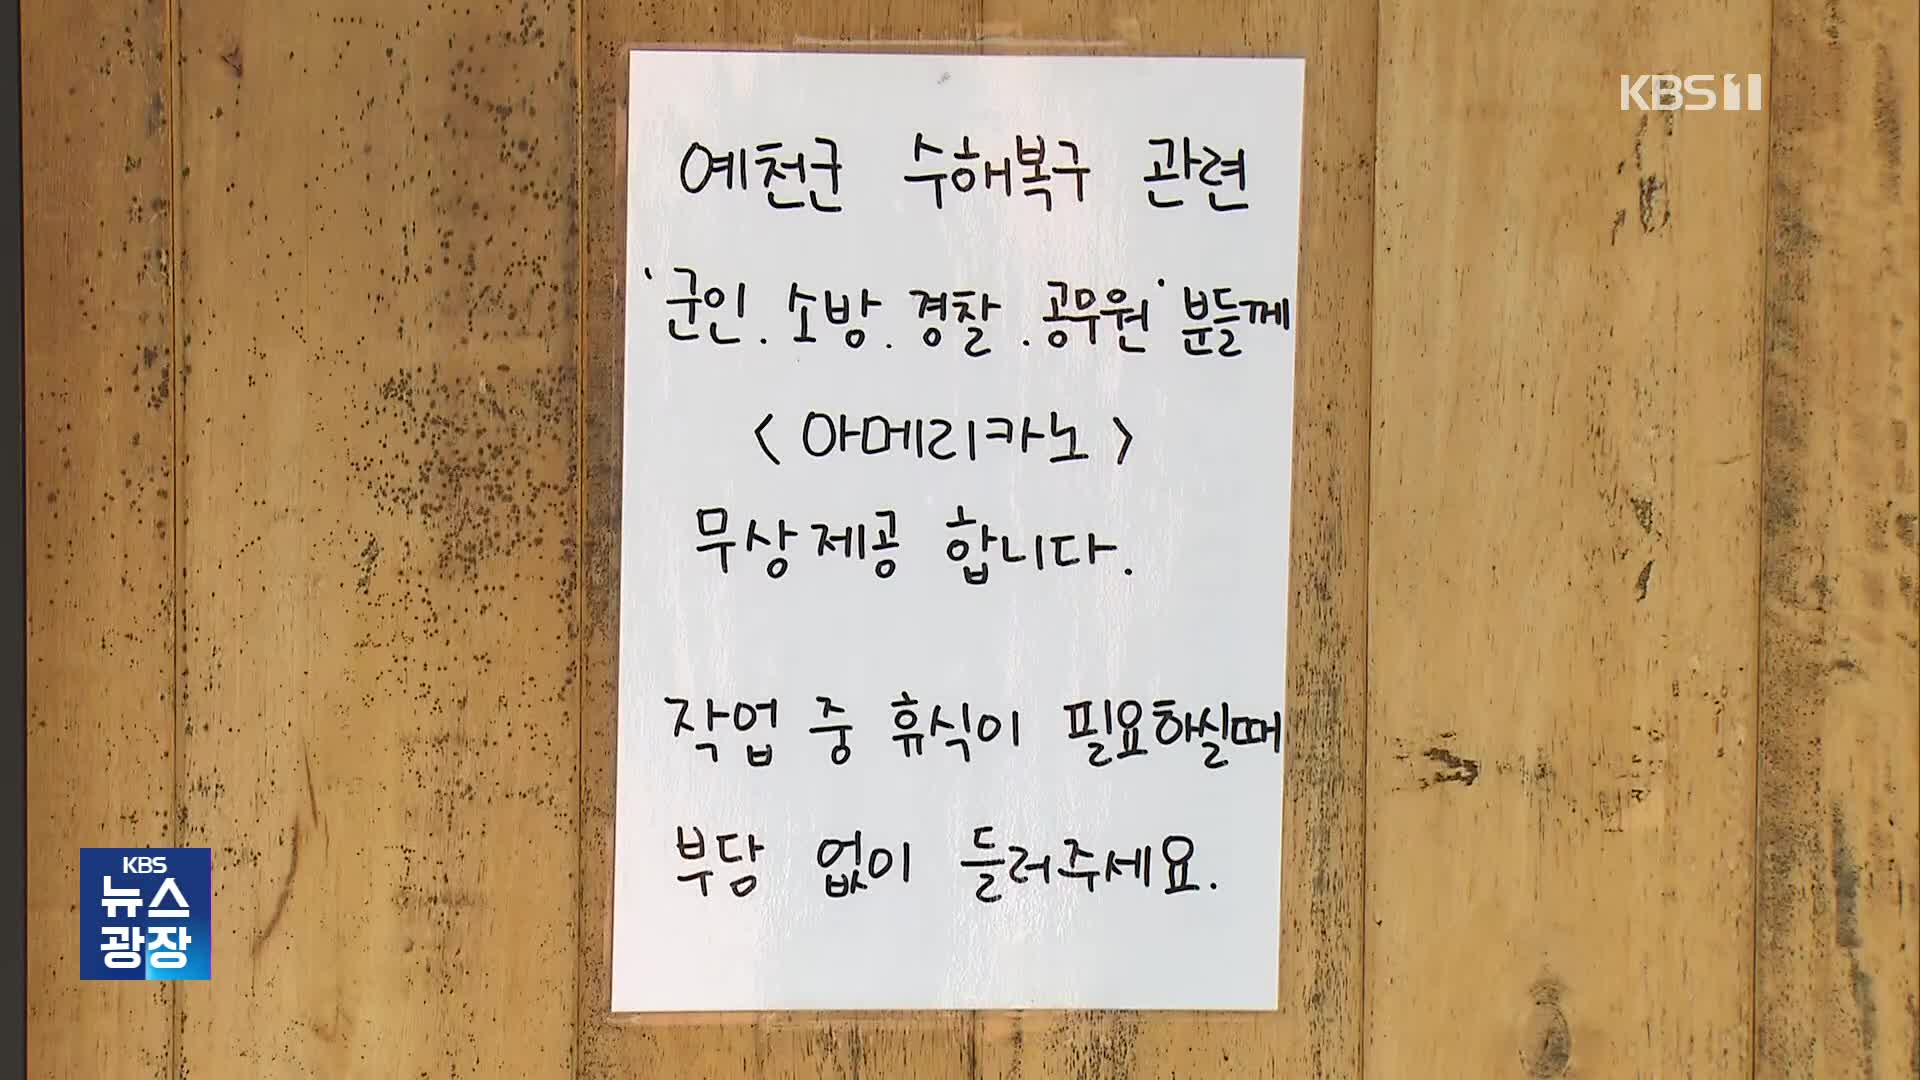 KBS 1
예천군 수해복구 관련
'군인. 소방. 경찰. 공무원' 분들께
< 아메리카노 >
무상제공 합니다.
작업 중 휴식이 필요하실때
부담 없이 들러주세요.
KBS
뉴스
광장